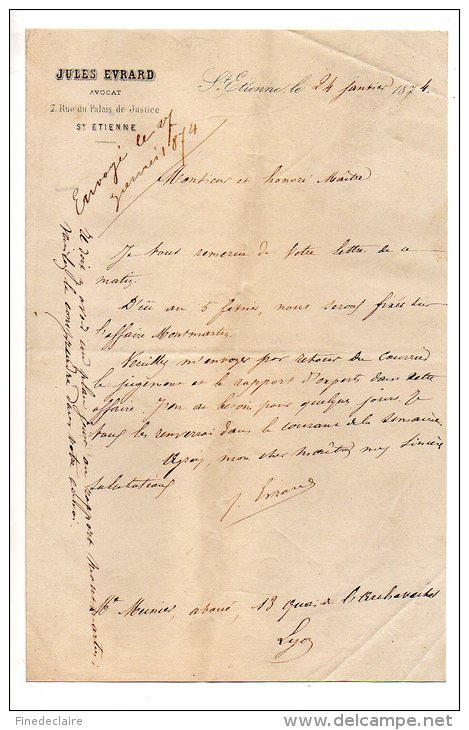 JULES EVRARD
AVOCAT
7, Rue du Palais de Justice
ST ETIENNE
St Etienne, le 24 janvier 1874.
Envoyé le 27
janvier 1874
Monsieur et honoré Maître
Je vous remercie de votre lettre de ce
matin.
D'ici au 5 février, nous serons fixés sur
l'affaire Montmartin.
Veuillez m'envoyer par retour du courrier
le jugement et le rapport d'experts dans cette
affaire. J'en ai besoin pour quelques jours. Je
vous les renverrai dans le courant de la semaine.
Agréez, mon cher Maître, mes sincères
salutations
J. Evrard
Mr Munier, avoué, 13 quai de l'Archevêché
Lyon
Il doit y avoir un plan joint au rapport Montmartin;
veuillez le comprendre dans votre envoi
Finedeclaire
www.delcampe.net